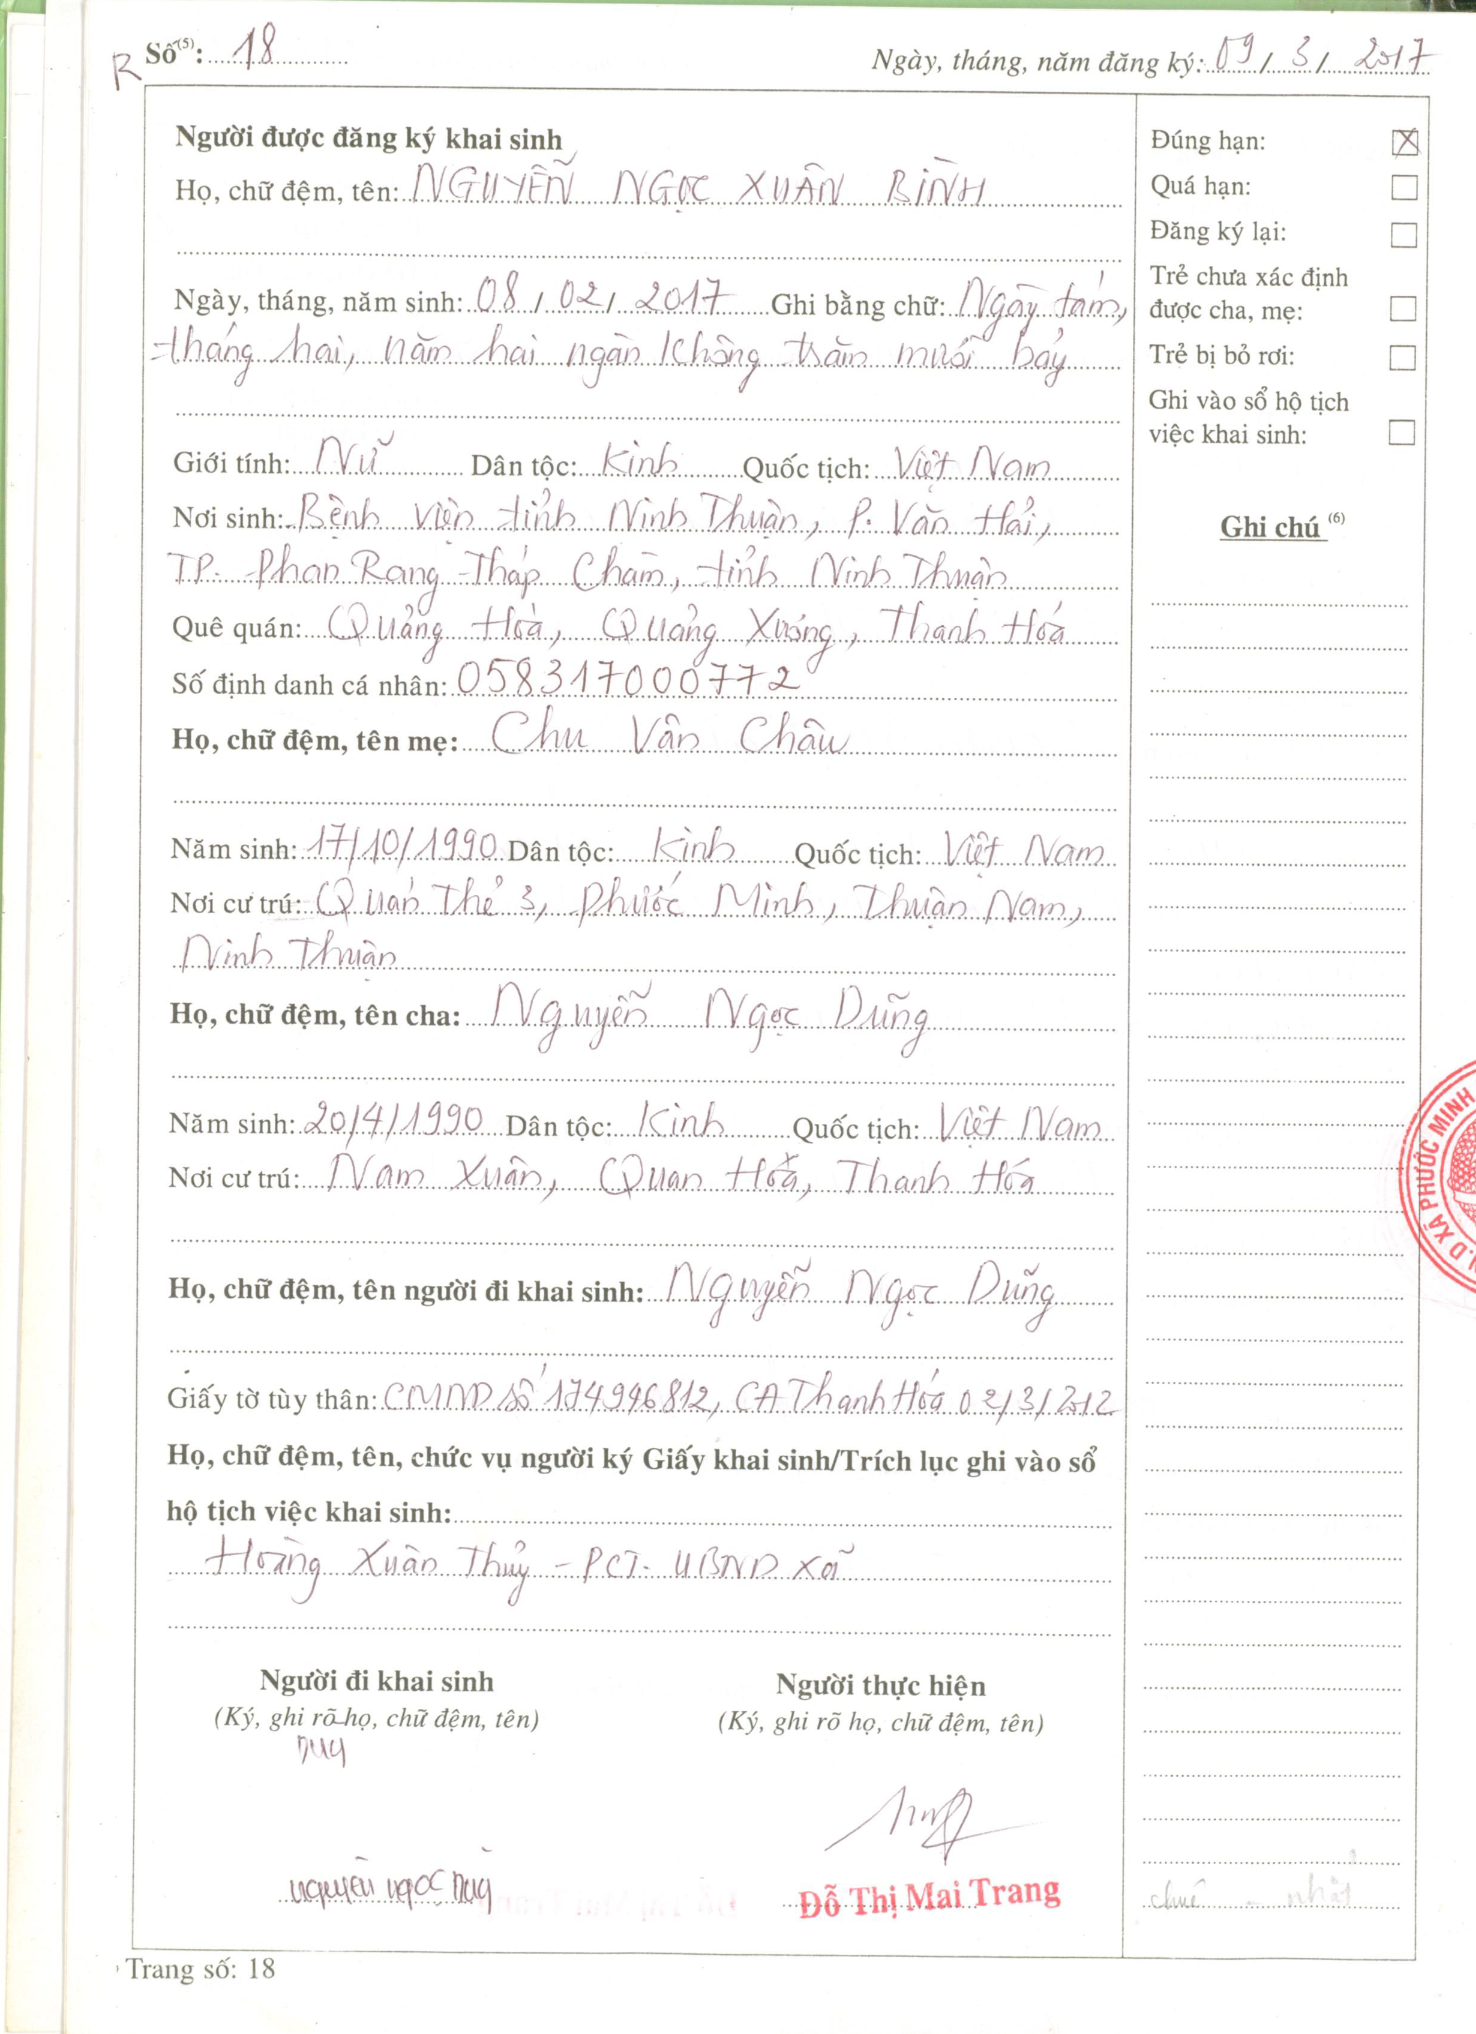 R Số(5): 18
Ngày, tháng, năm đăng ký: 09 / 3 / 2017
Người được đăng ký khai sinh
Họ, chữ đệm, tên: NGUYỄN NGỌC XUÂN BÌNH
Ngày, tháng, năm sinh: 08 / 02 / 2017 Ghi bằng chữ: Ngày tám,
tháng hai, năm hai ngàn không trăm mười bảy
Giới tính: Nữ Dân tộc: Kinh Quốc tịch: Việt Nam
Nơi sinh: Bệnh viện tỉnh Ninh Thuận, P. Văn Hải,
TP. Phan Rang - Tháp Chàm, tỉnh Ninh Thuận
Quê quán: Quảng Hòa, Quảng Xương, Thanh Hóa
Số định danh cá nhân: 058317000772
Họ, chữ đệm, tên mẹ: Chu Vân Châu
Năm sinh: 17/10/1990 Dân tộc: Kinh Quốc tịch: Việt Nam
Nơi cư trú: Quán Thẻ 3, Phước Minh, Thuận Nam,
Ninh Thuận
Họ, chữ đệm, tên cha: Nguyễn Ngọc Dũng
Năm sinh: 20/4/1990 Dân tộc: Kinh Quốc tịch: Việt Nam
Nơi cư trú: Nam Xuân, Quan Hoá, Thanh Hóa
Họ, chữ đệm, tên người đi khai sinh: Nguyễn Ngọc Dũng
Giấy tờ tùy thân: CMND số 174996812, CA Thanh Hóa 02/3/2012
Họ, chữ đệm, tên, chức vụ người ký Giấy khai sinh/Trích lục ghi vào sổ
hộ tịch việc khai sinh:
Hoàng Xuân Thủy - PCT. UBND xã
Người đi khai sinh
(Ký, ghi rõ họ, chữ đệm, tên)
Người thực hiện
(Ký, ghi rõ họ, chữ đệm, tên)
Nguyễn Ngọc
Đỗ Thị Mai Trang
Trang số: 18
Đúng hạn: X
Quá hạn:
Đăng ký lại:
Trẻ chưa xác định
được cha, mẹ:
Trẻ bị bỏ rơi:
Ghi vào sổ hộ tịch
việc khai sinh:
Ghi chú (6)
N.D XÃ PHƯỚC MINH